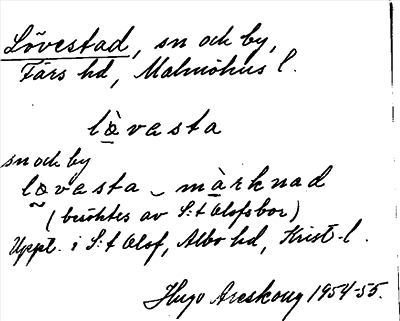 Lövestad, sn och by,
Färs hd, Malmöhus l.
lǿvasta
sn och by
løvasta ‿ màrknad
(besöktes av S:t Olofsbor)
Uppt. i S:t Olof, Albo hd, Krist. l.
Hugo Areskoug 1954-55.